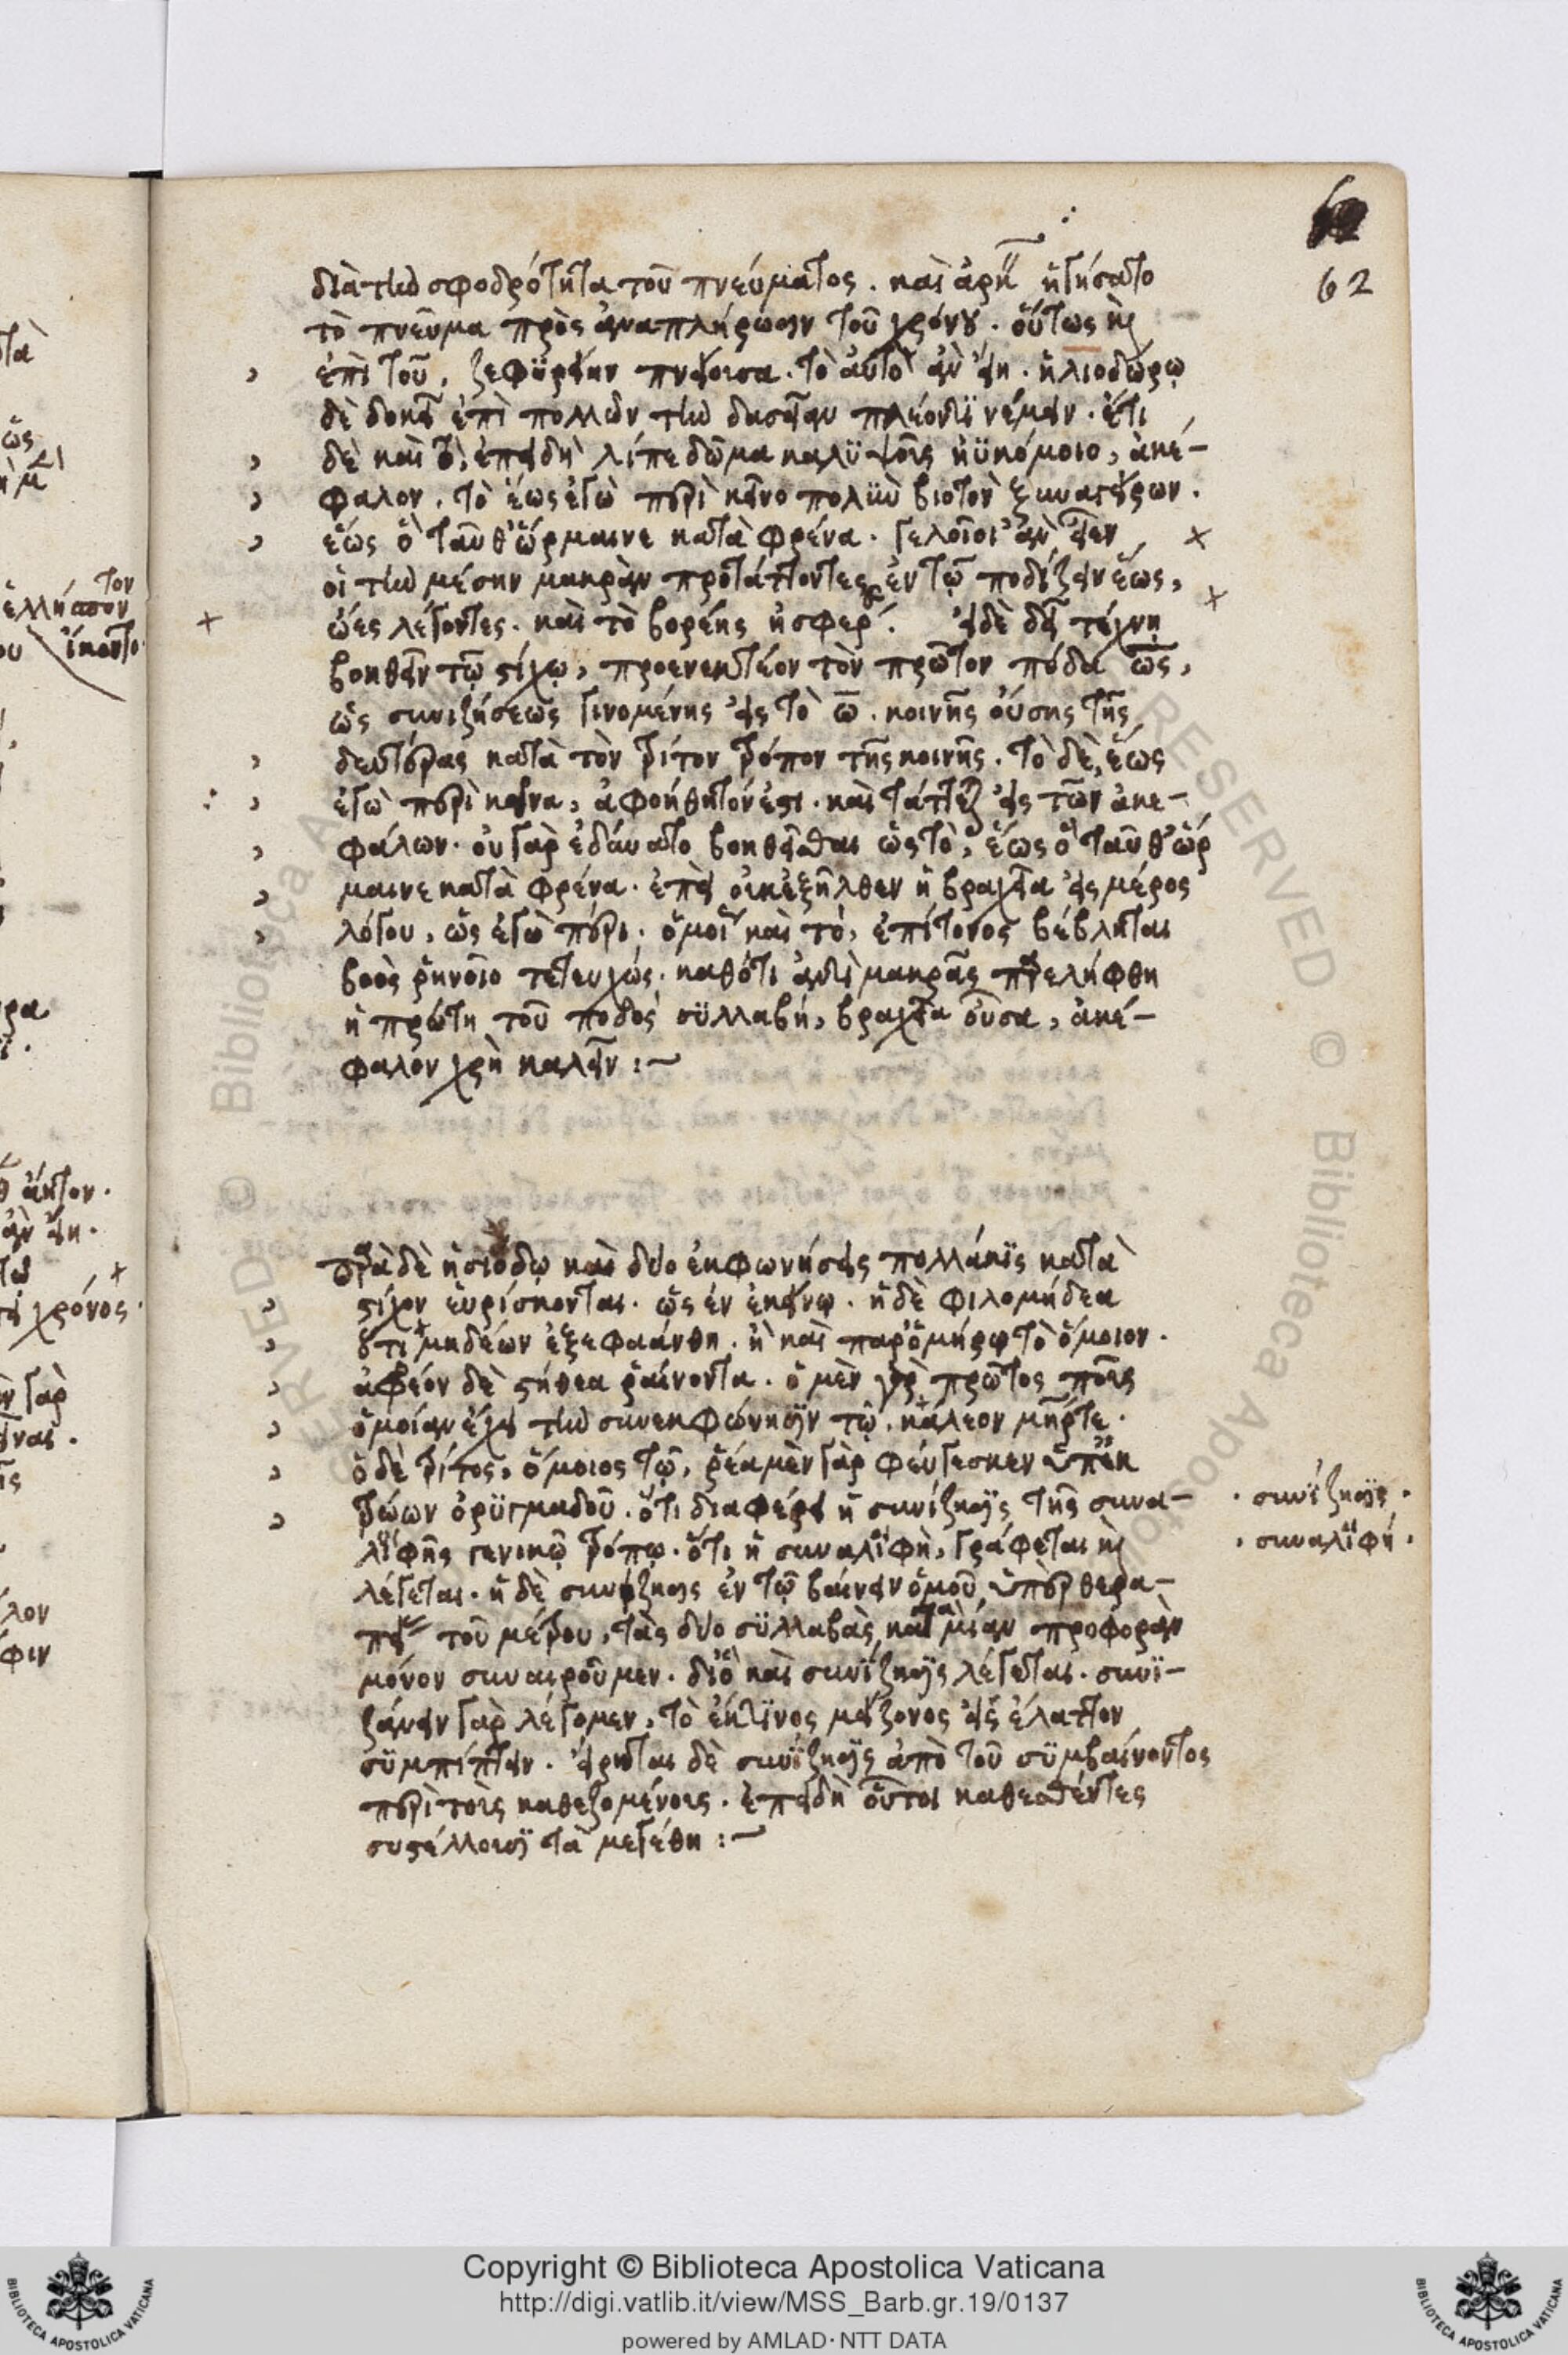 62
διὰ τὴν σφοδρότητα τοῦ πνεύματος. καὶ ἠτήσατο
τὸ πνεῦμα πρὸς ἀναπλήρωσιν τοῦ χρόνου. οὕτως κ(αὶ)
ἐπὶ τοῦ, ζεφϋρείην πνείουσα. τὸ αὐτὸ ἂν εἴη. ἡλιοδώρῳ
δὲ δοκεῖ ἐπὶ πολλῶν τὴν δασεῖαν πλέον τι νέμειν. ἔτι
δὲ καὶ τὸ, ἐπειδὴ λίπε δῶμα καλϋψοῦς ἠϋκόμοιο, ἀκέ-
φαλον. τὸ ἕως ἐγὼ περὶ κεῖνο πολὺν βίοτον ξυναγείρων.
ἕως ὃ ταῦθ' ὥρμαινε κατὰ φρένα. γελοῖοι ἂν εἶεν
οἱ τὴν μέσην μακρὰν προτάττοντες ἐν τῷ ποδίζειν ἕως,
ὦες λέγοντες. καὶ τὸ βορέης εἰ δὲ δεῖ τέχνῃ
βοηθεῖν τῷ στίχῳ, προενεκτέον τὸν πρῶτον πόδα ὣς,
ὡς συνιζήσεως γινομένης εἰς τὸ ω. κοινῆς οὔσης τῆς
δευτέρας κατὰ τὸν τρίτον τρόπον τῆς κοινῆς. τὸ δὲ, ἕως
ἐγὼ περὶ κεῖνα, ἀβοήθητόν ἐστι. καὶ τάττεται εἰς τῶν ἀκε-
φάλων. οὐ γὰρ ἐδύνατο βοηθεῖσθαι ὡς τὸ, ἕως ὃ ταῦθ' ὥρ
μαινε κατὰ φρένα. ἐπεὶ οὐκ ἐξῆλθεν ἡ βραχεῖα εἰς μέρος
λόγου, ὡς ἐγὼ περι. ὅμοι(ον) καὶ τό, ἐπίτονος βέβληται
βοὸς ῥινοῖο τετευχώς. καθότι ἀντὶ μακρᾶς παρελήφθη
ἡ πρώτη τοῦ ποδὸς σϋλλαβή, βραχεῖα οὖσα, ἀκέ-
φαλον χρὴ καλεῖν :~
παρὰ δὲ ἡσιόδῳ καὶ δύο ἐκφωνήσεις πολλάκις κατὰ
στίχον εὑρίσκονται. ὡς ἐν ἐκείνῳ. ἡ δὲ φιλομήδεα
ὅτι μηδέων ἐξεφαάνθη. ἢ καὶ παρ' ὁμήρῳ τὸ ὅμοιον.
ἀφρέον δὲ στήθεα ῥαίνοντα. ὁ μὲν γὰρ πρῶτος ποῦς
ὁμοίαν ἔχει τὴν συνεκφώνησιν τῷ. κάλεον μῆτρ τε.
ὁ δὲ τρίτος, ὅμοιος τῷ, ῥέα μὲν γὰρ φεύγεσκεν ὑπὲκ
τρώων ὀρϋγμαδοῦ. ὅτι διαφέρει ἡ συνίζησις τῆς συνα-
λοιφῆς γενικῷ τρόπῳ. ὅτι ἡ συναλοιφὴ, γράφεται κ(αὶ)
λέγεται. ἡ δὲ συνίζησις ἐν τῷ βαίνειν ὁμοῦ, ὑπὲρ θερα-
πείας τοῦ μέτρου, τὰς δύο σϋλλαβὰς, κατὰ μίαν προφορὰν
μόνον συναιροῦμεν. διὸ καὶ συνίζησις λέγεται. συνϊ-
ζάνειν γὰρ λέγομεν, τὸ ἔκ τινος μείζονος εἰς ἔλαττον
σϋμπίπτειν. εἴρηται δὲ συνίζησις ἀπὸ τοῦ σϋμβαίνοντος
περὶ τοῖς καθεζομένοις. ἐπειδὴ οὗτοι καθεσθέντες
συστέλλουσι τὰ μεγέθη :~
· συνίζησις ·
· συναλοιφή ·
Copyright © Biblioteca Apostolica Vaticana
http://digi.vatlib.it/view/MSS_Barb.gr.19/0137
powered by AMLAD·NTT DATA